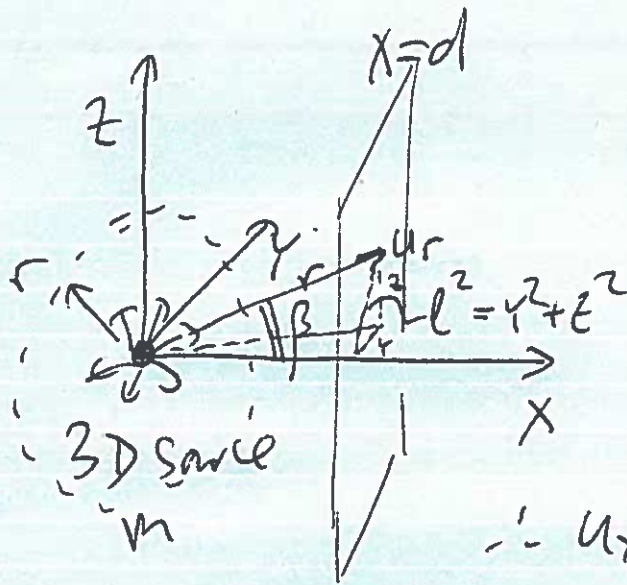 x=d
z
y
r
u_r
r
β
l² = y²+z²
x
3D source
m
∴ u